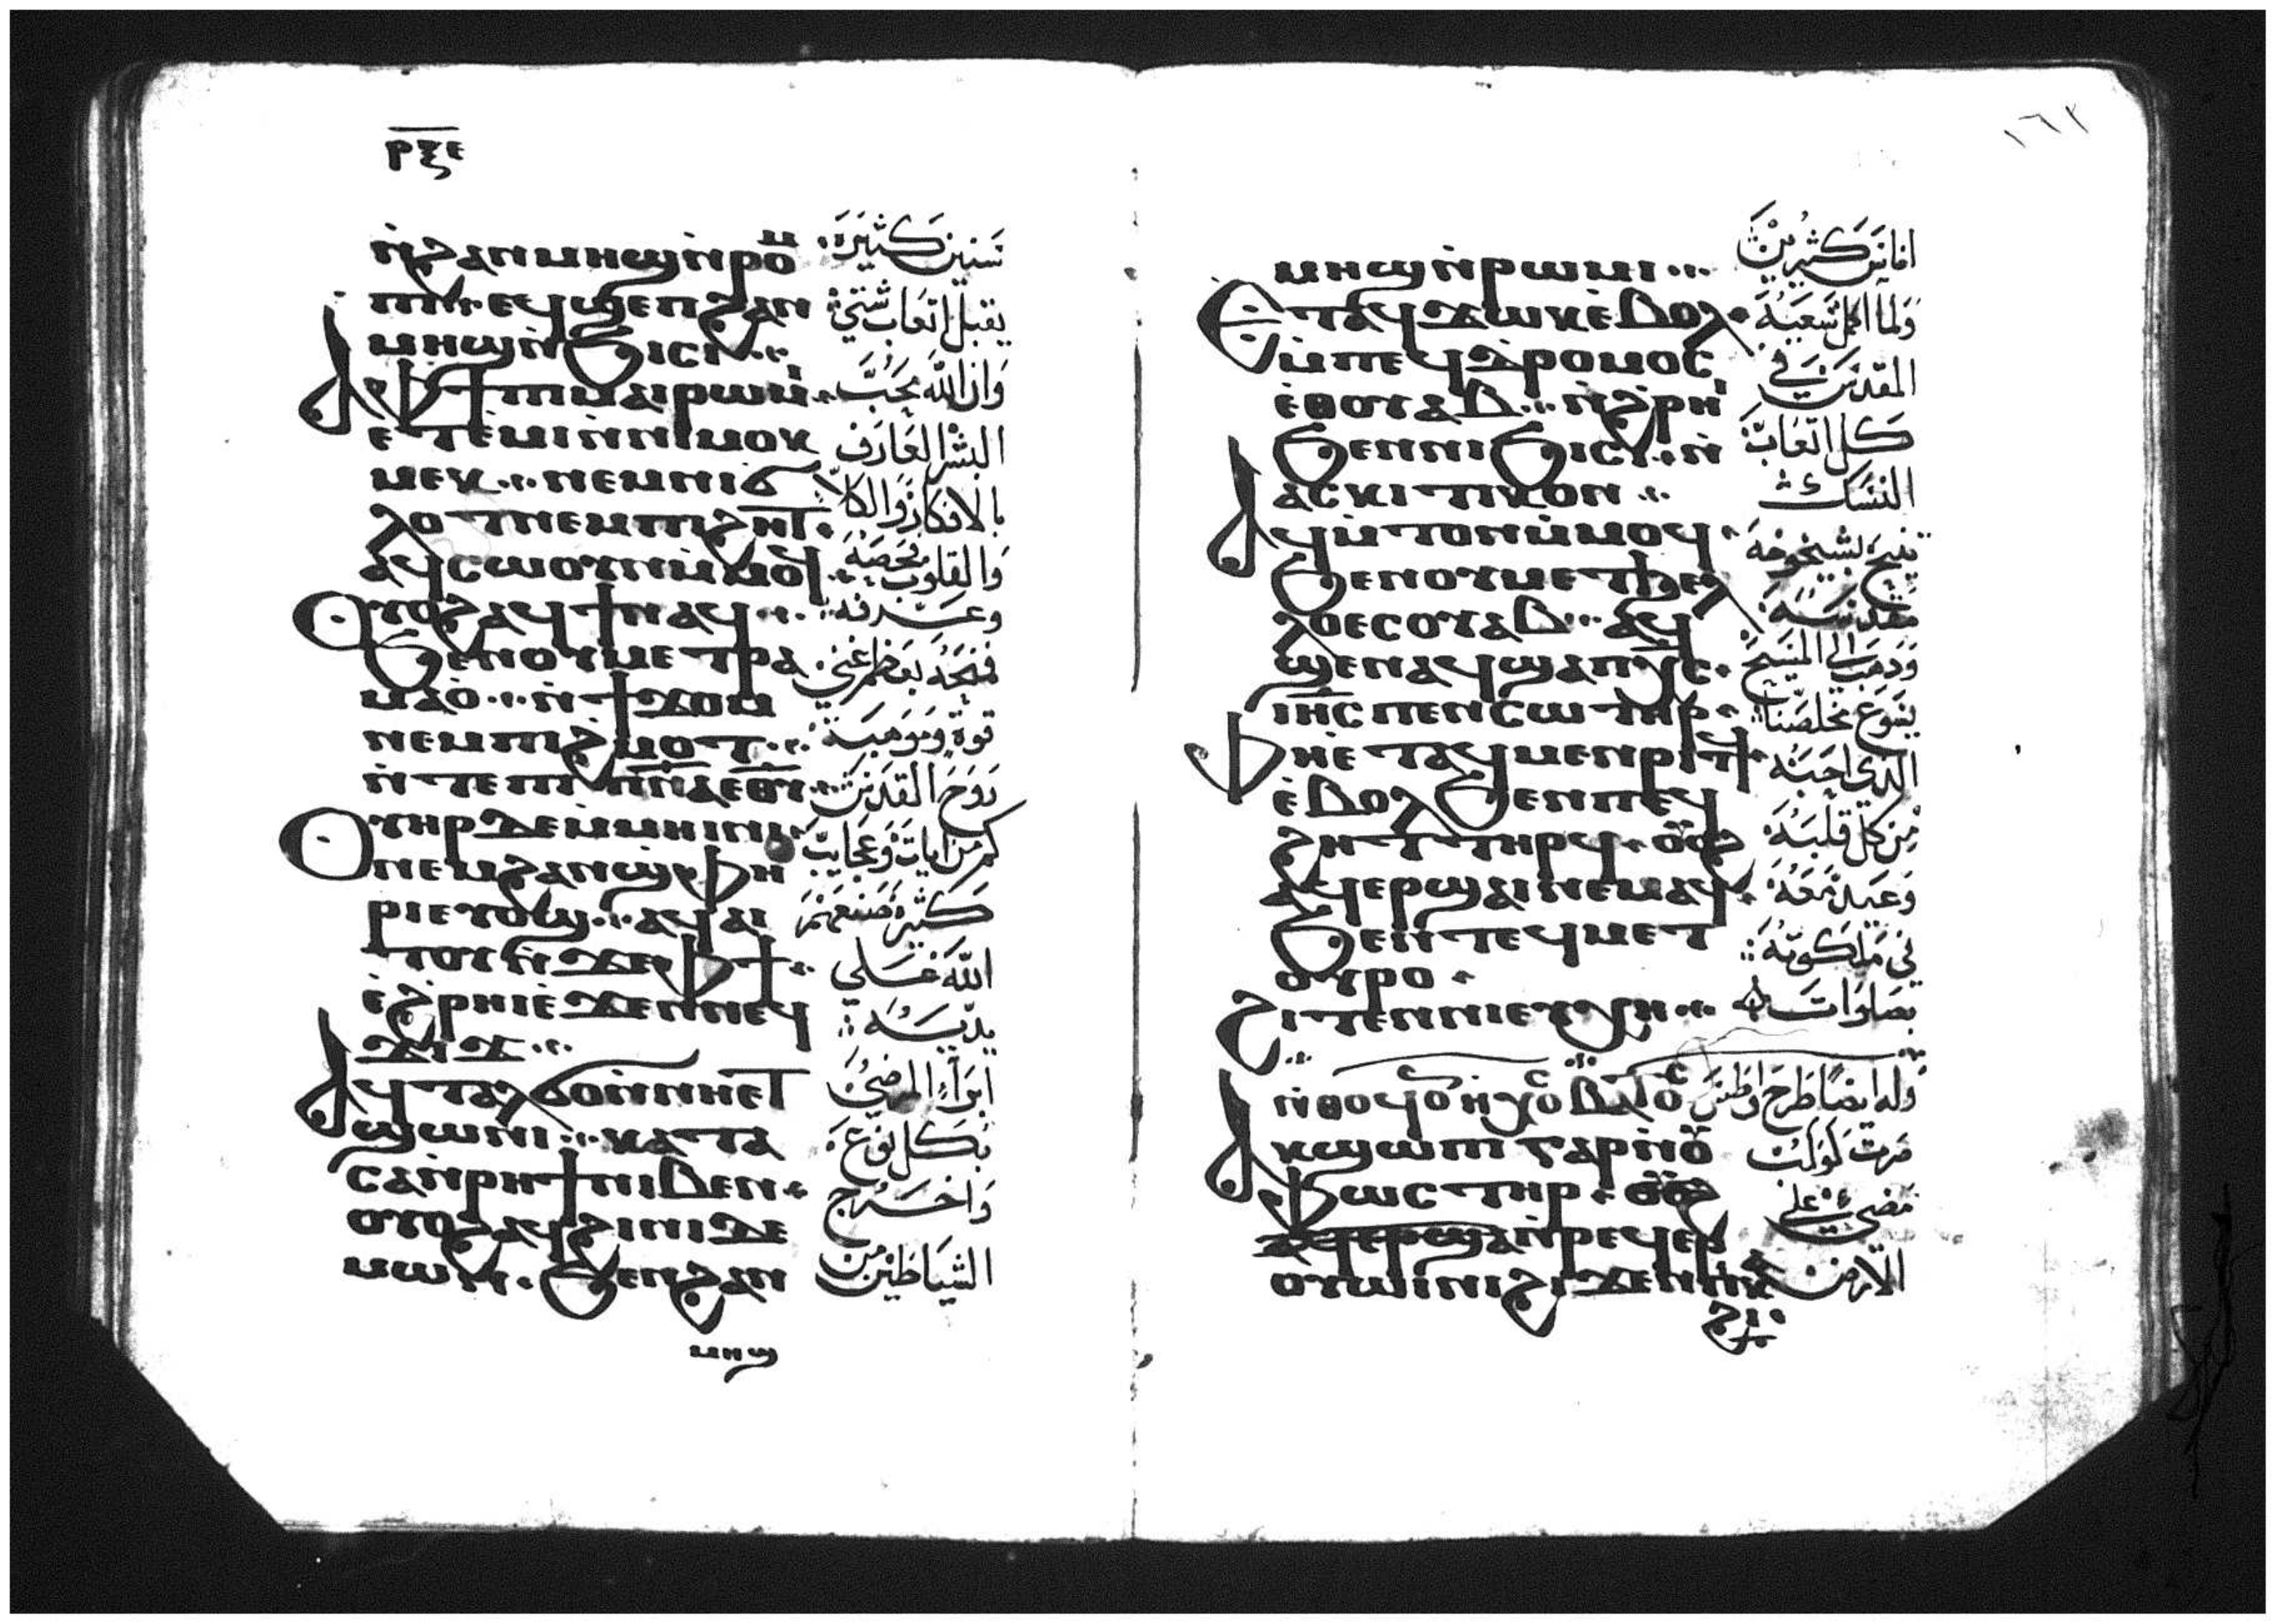 ⲣⲝⲉ
ⲛ̀ϩⲁⲛⲙⲏϣⲛ̀ⲣⲟ
ⲡⲓⲣⲉϥϣⲉⲡϩⲁⲛ
ⲙⲏϣⲛ̀ϧⲓⲥⲓ
ⲁⲫϯⲡⲓⲙⲁⲓⲣⲱⲙⲓ
ⲉⲧⲉⲙⲓⲛ̀ⲛⲓⲙⲟⲕ
ⲙⲉⲕ ⲛⲉⲙⲛⲓϭ
ⲗⲟⲧⲛⲉⲙⲡⲓϩⲏⲧ
ⲁϥⲥⲱⲟⲩⲛⲙ̀ⲙⲟϥ
ⲟⲩⲟϩⲁϥϯⲛⲁϥ
ϧⲉⲛⲟⲩⲙⲉⲧⲣⲁ
ⲙⲁⲟ̀ ⲛ̀ϯϫⲟⲙ
ⲛⲉⲙⲡⲓϩⲙⲟⲧ
ⲛ̀ⲧⲉⲡⲓⲡⲛⲁⲉⲑⲩ
ⲟⲩⲏⲣϫⲉⲙ̀ⲙⲏⲓⲛⲓ
ⲛⲉⲙϩⲁⲛϣⲫⲏ
ⲣⲓⲉⲩⲟϣ ⲁϥⲁⲓ
ⲧⲟⲩⲛ̀ϫⲉⲫϯ
ⲉ̀ϩⲣⲏⲓⲉ̀ϫⲉⲛⲛⲉϥ
ϫⲓϫ
ⲁϥⲧⲁⲗϭⲟⲛ̀ⲛⲏⲉⲧ
ϣⲱⲛⲓ ⲕⲁⲧⲁ
ⲥⲁⲛ̀ⲣⲏϯⲛⲓⲃⲉⲛ
ⲟⲩⲟϩⲁϥϩⲓⲛⲓⲇⲉ
ⲙⲱⲛ ϧⲉⲛϩⲁⲛ
ⲙⲏϣ
سنين كثيرة
يقبل اتعاب شتي
وان الله محب
البشر العارف
بالافكار والكلا
والقلوب فحصه
وعرفه
فنحه بعظم غني
قوة وموهبة
روح القدس
كم من ايات وعجايب
كثيرة صنعهم
الله علي
يديه
ابرا المرضي
بكل نوع
واخرج
الشياطين من
١٦٢
ⲙⲏϣⲛ̀ⲣⲱⲙⲓ
ⲉⲧⲁϥϫⲱⲕⲉ̀ⲃⲟⲗ
ⲙ̀ⲡⲉϥⲇⲣⲟⲙⲟⲥ
ⲉ̀ⲑⲟⲩⲁⲃ ⲛ̀ϩⲣⲏⲓ
ϧⲉⲛⲛⲓϧⲓⲥⲓ ⲛ̀
ⲁⲥⲕⲓⲧⲓⲕⲟⲛ
ⲁϥⲙ̀ⲧⲟⲛⲙ̀ⲙⲟϥ
ϧⲉⲛⲟⲩⲙⲉⲧϧⲉⲗ
ⲗⲟⲉⲥⲟⲩⲁⲃ ⲁϥ
ϣⲉⲛⲁϥϣⲁⲡⲭⲥ
ⲓⲏⲥⲡⲉⲛⲥⲱⲧⲏⲣ
ⲫⲏⲉ̀ⲧⲁϥⲙⲉⲛⲣⲓⲧϥ
ⲉ̀ⲃⲟⲗϧⲉⲛⲡⲉϥ
ϩⲏⲧⲧⲏⲣϥ ⲟⲟϩ
ⲁϥⲉⲣϣⲁⲓⲛⲉⲙⲁϥ
ϧⲉⲛⲧⲉϥⲙⲉⲧ
ⲟⲩⲣⲟ
ϩⲓⲧⲉⲛⲛⲓⲉⲩⲭⲏ
ⲛ̀ⲑⲟϥⲟⲛ
ⲁⲕϣⲱⲡⲓⲅⲁⲣⲛ̀ⲟ
ⲫⲱⲥⲧⲏⲣ ⲟⲟϩ
ⲁϥⲉⲣϣⲁⲛ̀ⲣⲉϥⲉⲣ
ⲟⲩⲱⲓⲛⲓϩⲓϫⲉⲛⲡⲓⲕⲁ
ϩⲓ
اناس كثيرين
ولما اكمل سعيه
المقدس في
كل اتعاب
النسك
تنيح بشيخوخه
مقدسه
وذهب الي المسيح
يسوع مخلصنا
الذي احبه
من كل قلبه
وعيد معه
في ملكوته
بصلوات
وله ايضا طرح واطس
صرت كوكب
مضي علي
الارض